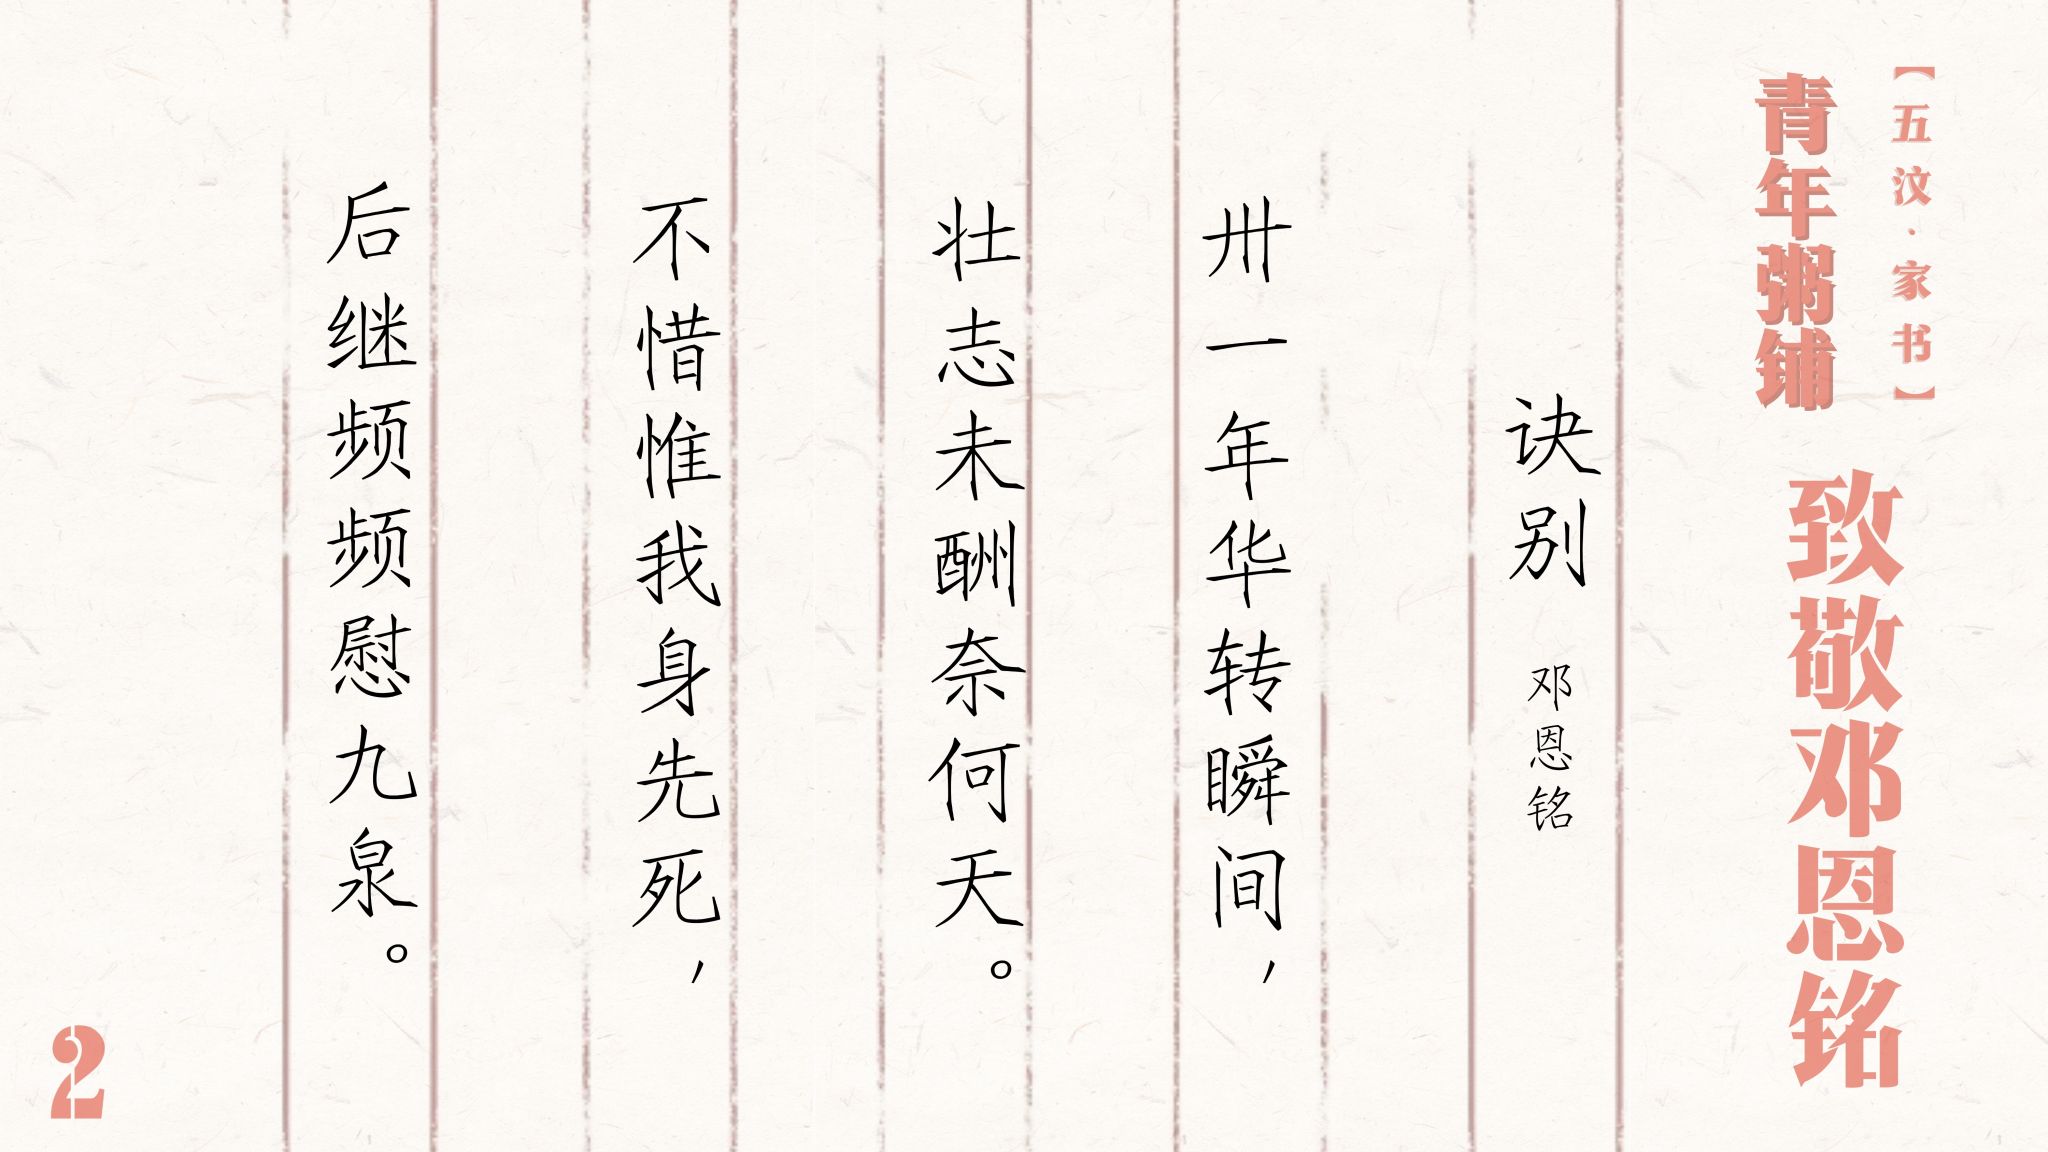 【五汶·家书】
青年粥铺
致敬邓恩铭
诀别
邓恩铭
卅一年华转瞬间，
壮志未酬奈何天。
不惜惟我身先死，
后继频频慰九泉。
2